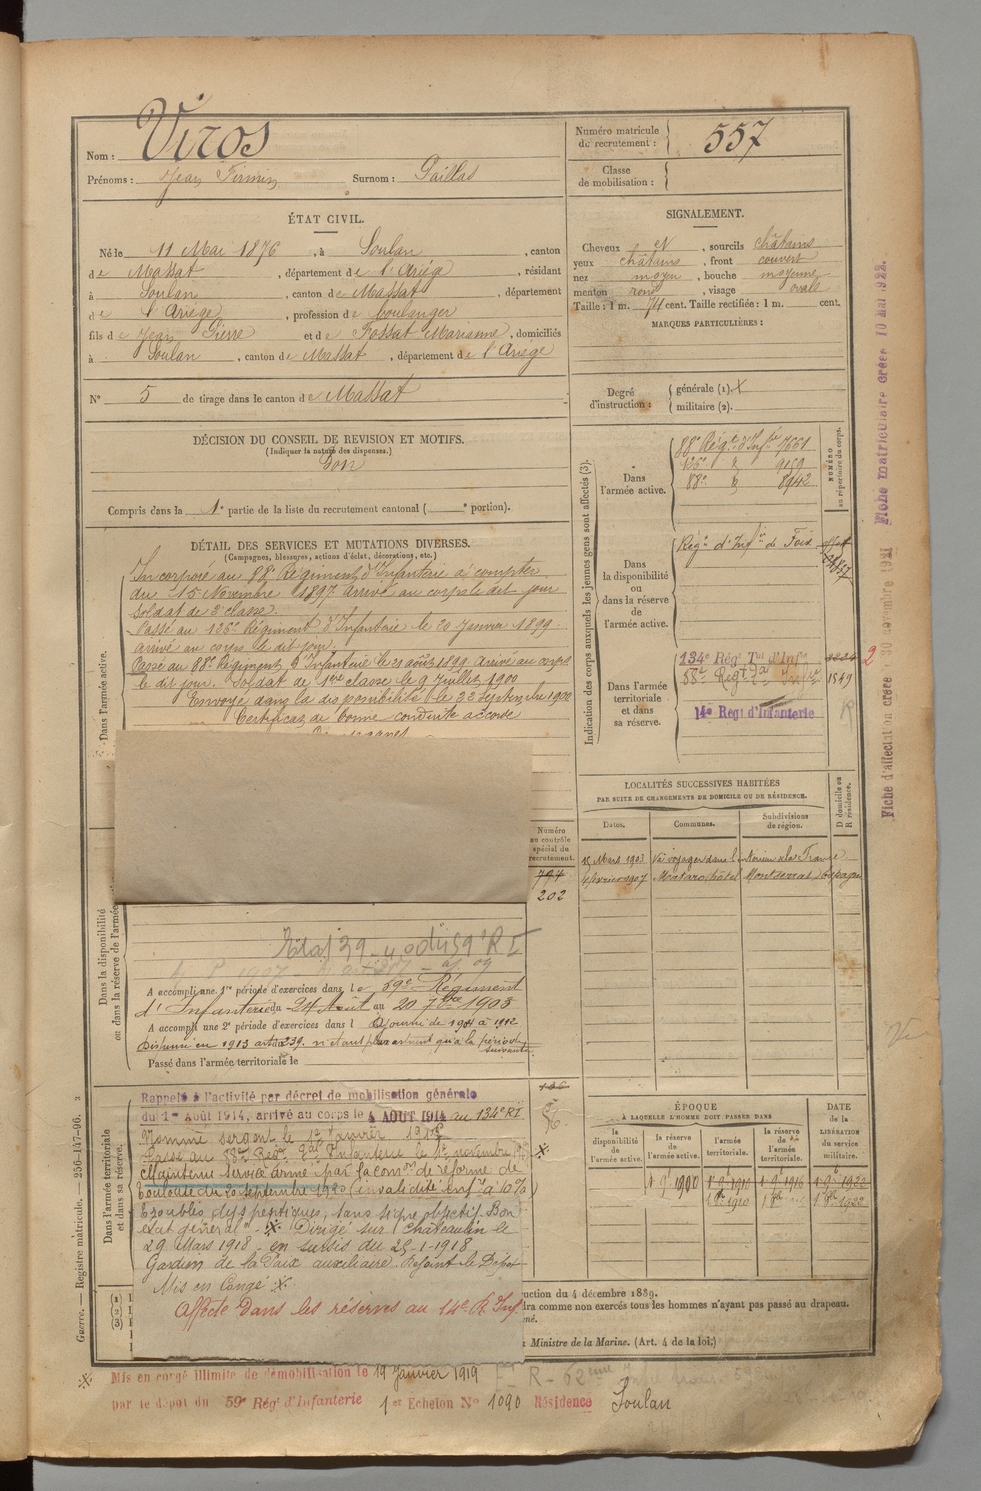 Nom : Viros
Prénoms : Jean Firmin Surnom : Paillas
Numéro matricule du recrutement : 557
Classe de mobilisation :
ÉTAT CIVIL.
Né le 11 Mai 1876, à Soulan, canton
de Massat, département de l'Ariège, résidant
à Soulan, canton de Massat, département
de l'Ariège, profession de boulanger
fils de Jean Pierre et de Fossat Marianne, domiciliés
à Soulan, canton de Massat, département de l'Ariège
N° 5 de tirage dans le canton de Massat
SIGNALEMENT.
Cheveux N, sourcils châtains
yeux châtains, front couvert
nez moyen, bouche moyenne
menton rond, visage ovale
Taille : 1 m. 74 cent. Taille rectifiée : 1 m. cent.
MARQUES PARTICULIÈRES :
Degré d'instruction : générale (1). X
militaire (2).
DÉCISION DU CONSEIL DE REVISION ET MOTIFS.
(Indiquer la nature des dispenses.)
Bon
Compris dans la 1e partie de la liste du recrutement cantonal ( e portion).
DÉTAIL DES SERVICES ET MUTATIONS DIVERSES.
(Campagnes, blessures, actions d'éclat, décorations, etc.)
Dans l'armée active.
Incorporé au 88e Régiment d'Infanterie à compter
du 15 Novembre 1897 arrivé au corps le dit jour
soldat de 2e classe.
Passé au 126e Régiment d'Infanterie le 20 Janvier 1899
arrivé au corps le dit jour.
Passé au 88e Régiment d'Infanterie le 21 août 1899 arrivé au corps
le dit jour. Soldat de 1ère classe le 9 Juillet 1900
Envoyé dans la disponibilité le 22 Septembre 1900
Certificat de bonne conduite accordé
Indication des corps auxquels les jeunes gens sont affectés (3).
NUMÉRO au répertoire du corps.
Dans l'armée active.
88e Régt d'Infie 7661
126e d 9159
88e d 8942
Dans la disponibilité ou dans la réserve de l'armée active.
Régt d'Infie de Foix
Dans l'armée territoriale et dans sa réserve.
134e Rég Tal d'Infie
88e Regt Tal Infie 1549
14e Regt d'Infanterie
LOCALITÉS SUCCESSIVES HABITÉES
PAR SUITE DE CHANGEMENTS DE DOMICILE OU DE RÉSIDENCE.
Dates. Communes. Subdivisions de région. D domicile ou R résidence.
15 Mars 1903 Va voyager dans l'intérieur de la France
4 février 1907 Mataro hôtel Montserrat Espagne
Numéro au contrôle spécial du recrutement.
794
202
Dans la disponibilité ou dans la réserve de l'armée
A accompli une 1re période d'exercices dans le 59e Régiment
d'Infanterie du 24 Août au 20 7bre 1903
A accompli une 2e période d'exercices dans l Ajourné de 1904 à 1912
Dispensé en 1913 art. 239. n'étant plus astreint qu'à la période
suivante.
Passé dans l'armée territoriale le
Dans l'armée territoriale et dans sa réserve.
Rappelé à l'activité par décret de mobilisation générale
du 1er Août 1914, arrivé au corps le 4 AOUT 1914 au 134e RI
Nommé sergent le 12 Janvier 1915
Passé au 88e Regt Tal Infanterie le 1er novembre
Maintenu service armé par la Con de réforme de
Toulouse du 20 septembre 1920 (invalidité infre à 10%)
Troubles dyspeptiques, sans signe objectif. Bon
état général". Dirigé sur Châteaulin le
29 Mars 1918 - en sursis du 25-1-1918
Gardien de la Paix auxiliaire. Rejoint le Dépôt
Mis en Congé
Affecté dans les réserves au 14e R. Inf.
ÉPOQUE
À LAQUELLE L'HOMME DOIT PASSER DANS
la disponibilité de l'armée active. la réserve de l'armée active. l'armée territoriale. la réserve de l'armée territoriale.
DATE de la LIBÉRATION du service militaire.
1.9.1900 1.9.1910 1.9.1916 1.9.1922
uction du 4 décembre 1889.
dra comme non exercés tous les hommes n'ayant pas passé au drapeau.
Ministre de la Marine. (Art. 4 de la loi.)
Guerre. — Registre matricule. — 256-147-96.
Mis en congé illimité de démobilisation le 19 Janvier 1919
par le dépôt du 59e Régt d'Infanterie 1er Echelon No 1090 Résidence Soulan
Fiche matriculaire créée 10 MAI 1922.
Fiche d'affectation créée 30 novembre 1921